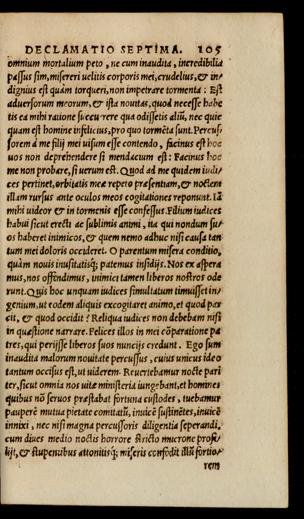 DECLAMATIO SEPTIMA. 105
omnium mortalium peto, ne cum inaudita, incredibilia
passus sim, misereri uelitis corporis mei, crudelius, & in/
dignius est quàm torqueri, non impetrare tormenta: Est
aduersorum meorum, & ista nouitas, quòd necesse habe
tis ea mihi ratione succurrere qua odissetis aliũ, nec quic
quam est homine infelicius, pro quo tormẽta sunt. Percus/
sorem à me filij mei uisum esse contendo, facinus est hoc
uos non deprehendere si mendacium est: Facinus hoc
me non probare, si uerum est. Quod ad me quidem iudi/
ces pertinet, orbitatis meæ repeto præsentiam, & noctem
illam rursus ante oculos meos cogitationes reponunt. Iã
mihi uideor & in tormenis esse confessus. Filium iudices
habui sicut erecti ac sublimis animi, ita qui nondum su/
os haberet inimicos, & quem adhuc nisi causa tan
tum mei doloris occideret. O parentum misera conditio,
quàm nouis inusitatisq; patemus insidijs. Nos ex aspera
mus, nos offendimus, inimici tamen liberos nostros ode
runt. Quis hoc unquam iudices simultatum timuisset in/
genium, ut eodem aliquis excogitaret animo, et quod par
cit, & quod occidit? Reliqua iudices non debebam nisi
in quæstione narrare. Felices illos in mei cõparatione pa
tres, qui perijsse liberos suos nuncijs credunt. Ego sum
inaudita malorum nouitate percussus, cuius unicus ideo
tantum occisus est, ut uiderem. Reuertebamur nocte pari
ter, sicut omnia nos uitæ ministeria iungebant, et homines
quibus nõ seruos præstabat fortuna custodes, tuebamur
pauperẽ mutua pietate comitatũ, inuicẽ sustinẽtes, inuicẽ
innixi, nec nisi magna percussoris diligentia seperandi,
cum diues medio noctis horrore stricto mucrone prosi/
lijt, & stupentibus attonitisq; miseris confodit illũ fortio/
rem